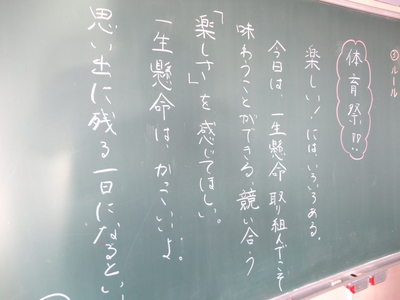 ルール
体育祭!!
楽しい!には、いろいろある。
今日は、一生懸命 取り組んでこそ
味わうことができる、競い合う
「楽しさ」を感じてほしい。
一生懸命は、かっこいいよ。
思い出に残る一日になるとい